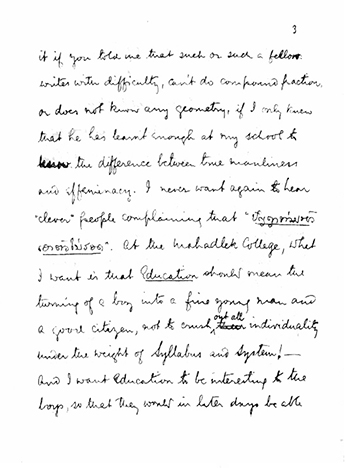 3
it if you told me that such or such a fellow
writes with difficulty, can't do compound fraction,
or does not know any geometry, if I only knew
that he has learnt enough at my school to
know the difference between true manliness
and effeminacy. I never want again to hear
"clever" people complaining that "
". At the Mahadlek College, what
I want is that Education should mean the
turning of a boy into a fine young man and
a good citizen, not to crush out all individuality
under the weight of Syllabus and System! —
And I want Education to be interesting to the
boys, so that they would in later days be able